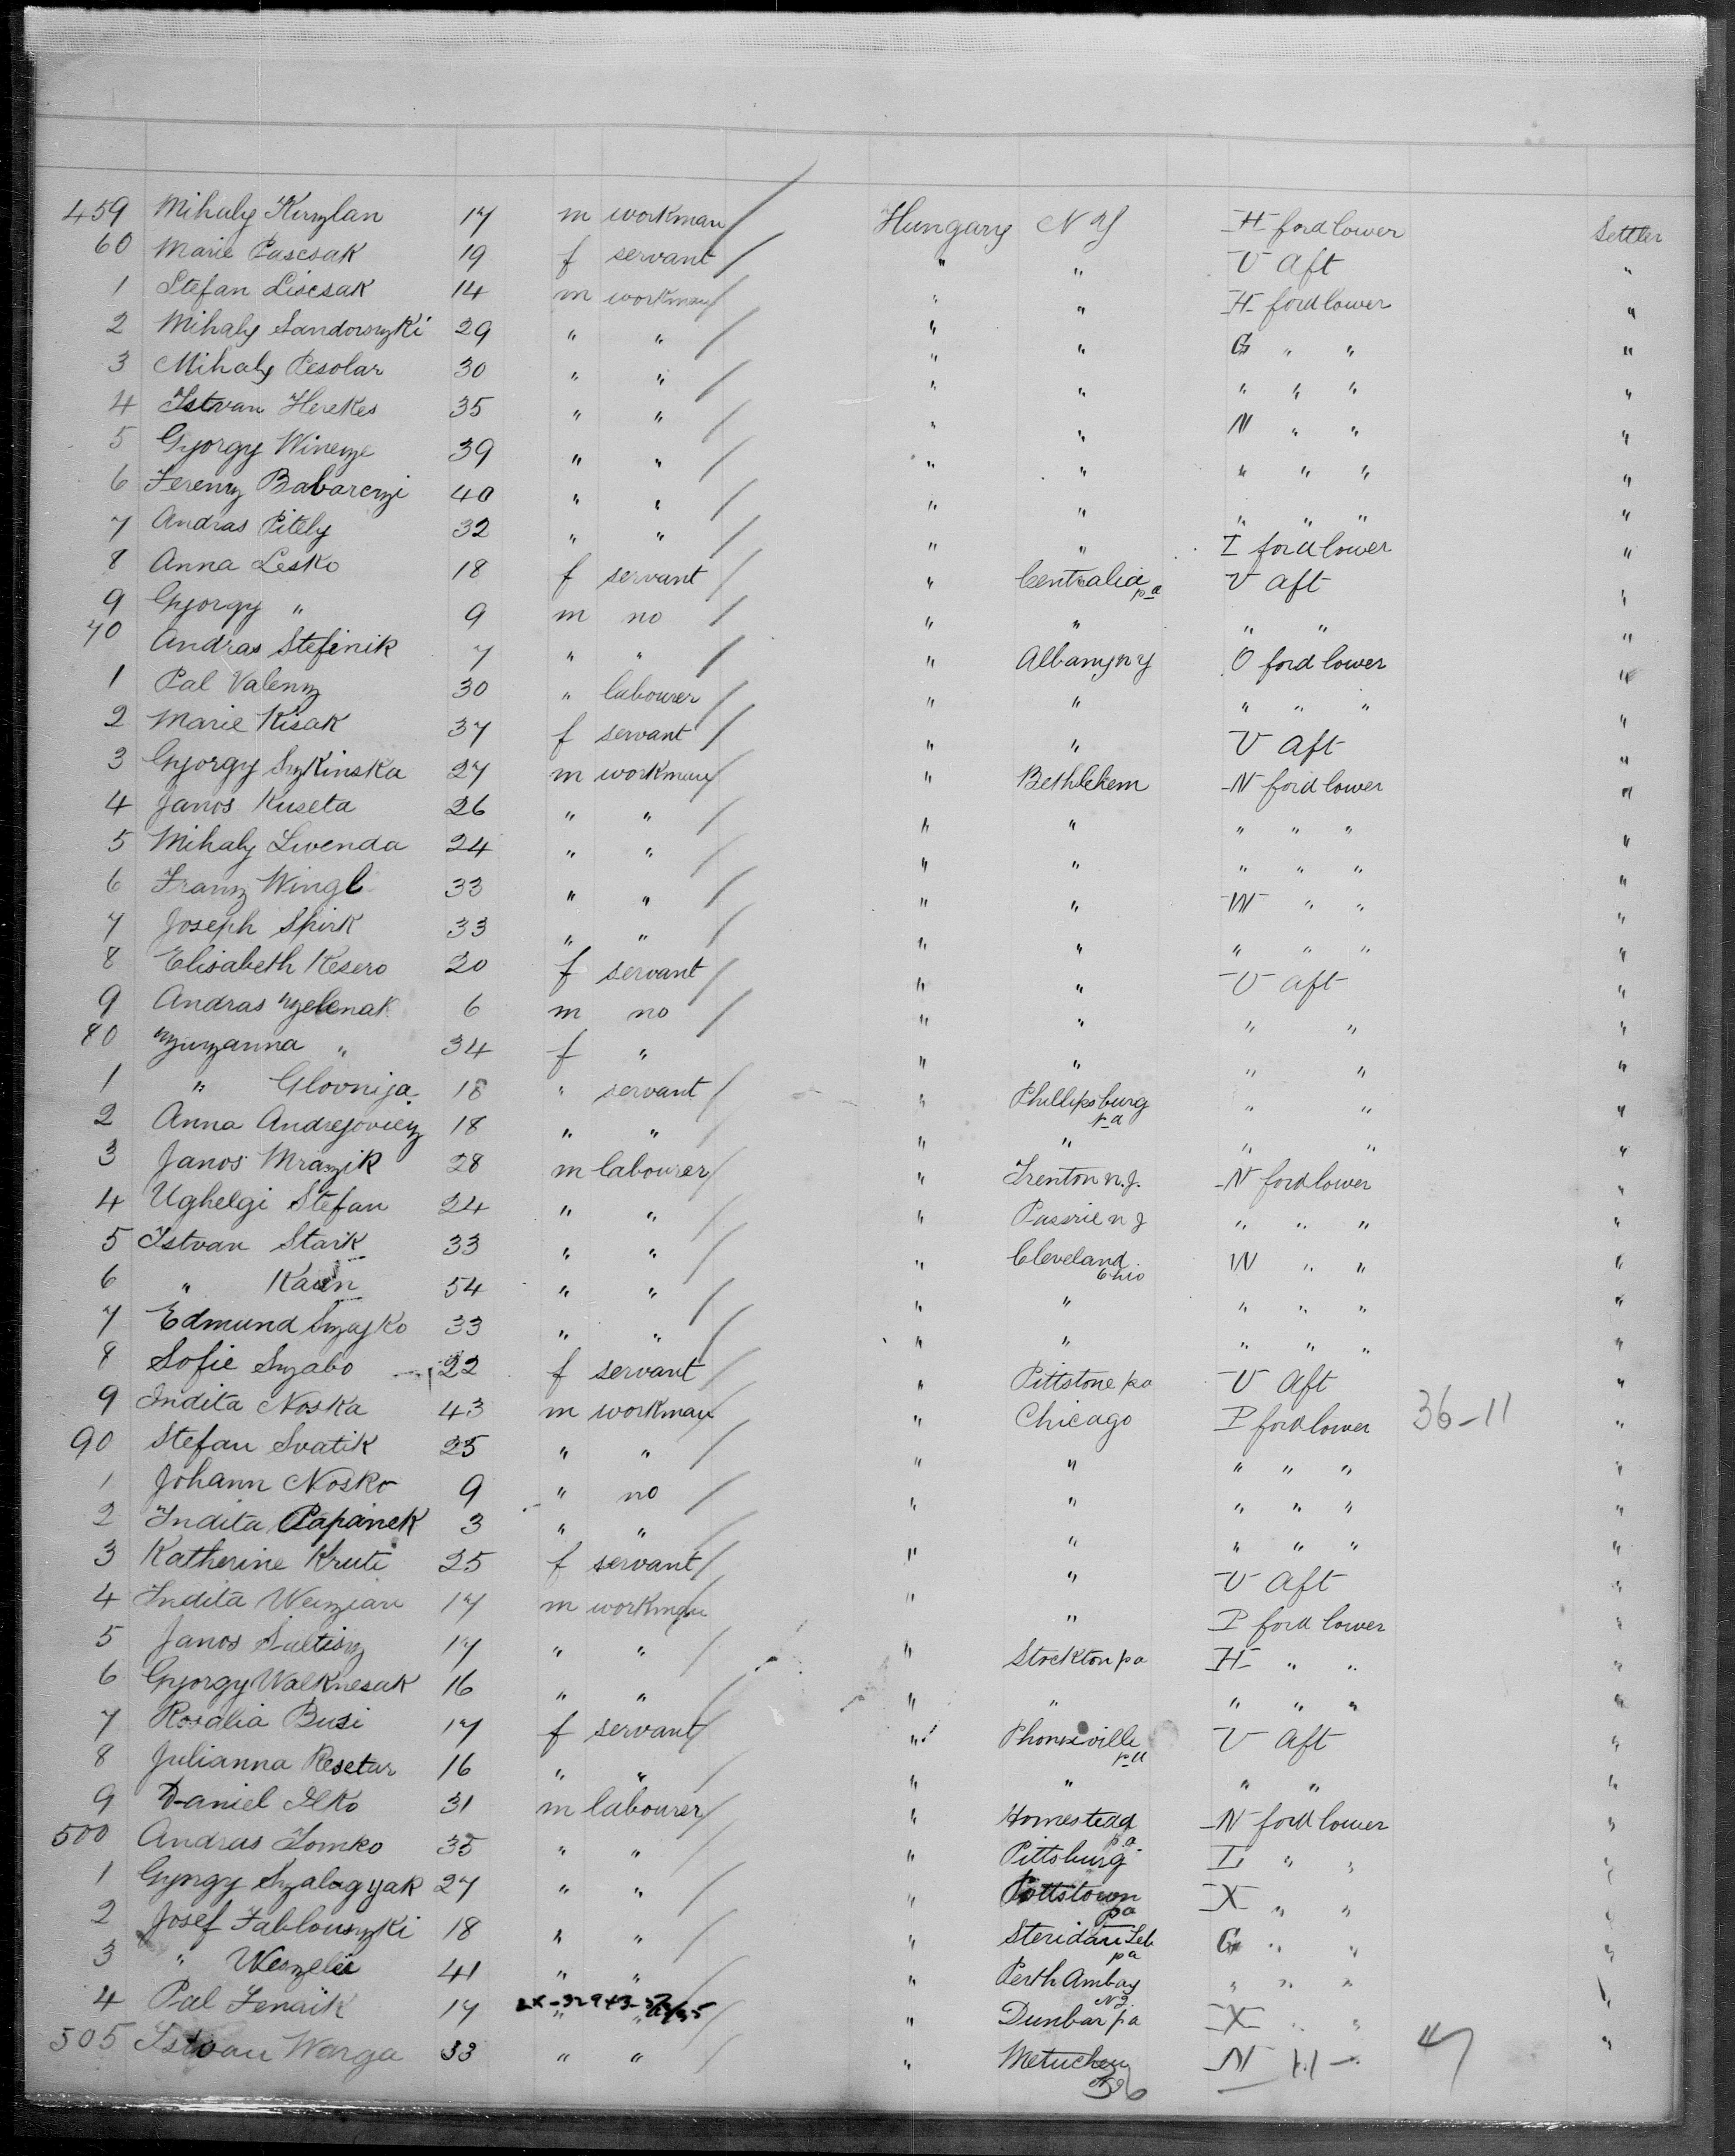 459 Mihaly Kinzlan 17 m workman Hungary N Y H ford lower Settler
60 Marie Pascsak 19 f servant " " V Aft "
1 Stefan Liscsak 14 m workman " " H ford lower "
2 Mihaly Sandorszki 29 " " " " G " " "
3 Mihaly Pesolar 30 " " " " " " " "
4 Istvan Herekes 35 " " " " N " " "
5 Gyorgy Wincze 39 " " " " " " " "
6 Ferenz Babarczi 40 " " " " " " " "
7 Andras Pitely 32 " " " " I ford lower "
8 Anna Lesko 18 f servant " Centralia pa V Aft "
9 Gyorgy " 9 m no " " " " "
70 Andras Stefinik 7 " " " Albany n y O ford lower "
1 Pal Valenz 30 " labourer " " " " " "
2 Marie Kisak 37 f servant " " V Aft "
3 Gyorgy Szkinska 27 m workman " Bethlehem N ford lower "
4 Janos Kuseta 26 " " " " " " " "
5 Mihaly Livenda 24 " " " " " " " "
6 Franz Wingl 33 " " " " W " " "
7 Joseph Spirk 33 " " " " " " " "
8 Elisabeth Kesero 20 f servant " " V Aft "
9 Andras Zelenak 6 m no " " " " "
80 Zuzanna " 34 f " " " " " "
1 " Glovnija 18 " servant " Phillipsburg pa " " "
2 Anna Andrejovicz 18 " " " " " " "
3 Janos Mrazik 28 m labourer " Trenton n.j. N ford lower "
4 Ughelgi Stefan 24 " " " Passrie n J " " " "
5 Istvan Stark 33 " " " Cleveland Ohio W " " "
6 " 54 " " " " " " " "
7 Edmund Szajko 33 " " " " " " " "
8 Sofie Szabo 22 f servant " Pittstone pa V Aft "
9 Indita Noska 43 m workman " Chicago P ford lower 36-11 "
90 Stefan Svatik 25 " " " " " " " "
1 Johann Nosko 9 " no " " " " " "
2 Indita Papanek 3 " " " " " " " "
3 Katherine Kruti 25 f servant " " V Aft "
4 Indita 17 m workman " " P ford lower "
5 Janos Sultisz 17 " " " Stockton pa H " " "
6 Gyorgy Walknesak 16 " " " " " " " "
7 Rosalia Busi 17 f servant " Phonixville pa V Aft "
8 Julianna Resetar 16 " " " " " " "
9 Daniel Ilko 31 m labourer " Homestead pa N ford lower "
500 Andras Tomko 35 " " " Pittsburg L " " "
1 Gyngy Szalagyak 27 " " " Pottstown pa X " " "
2 Josef Jablonszki 18 " " " pa G " " "
3 " 41 " " " Perth Amboy N J. " " " "
4 Pal 17 " " " Dunbar pa X " " "
505 Istvan Warga 33 " " " Metuchen N "